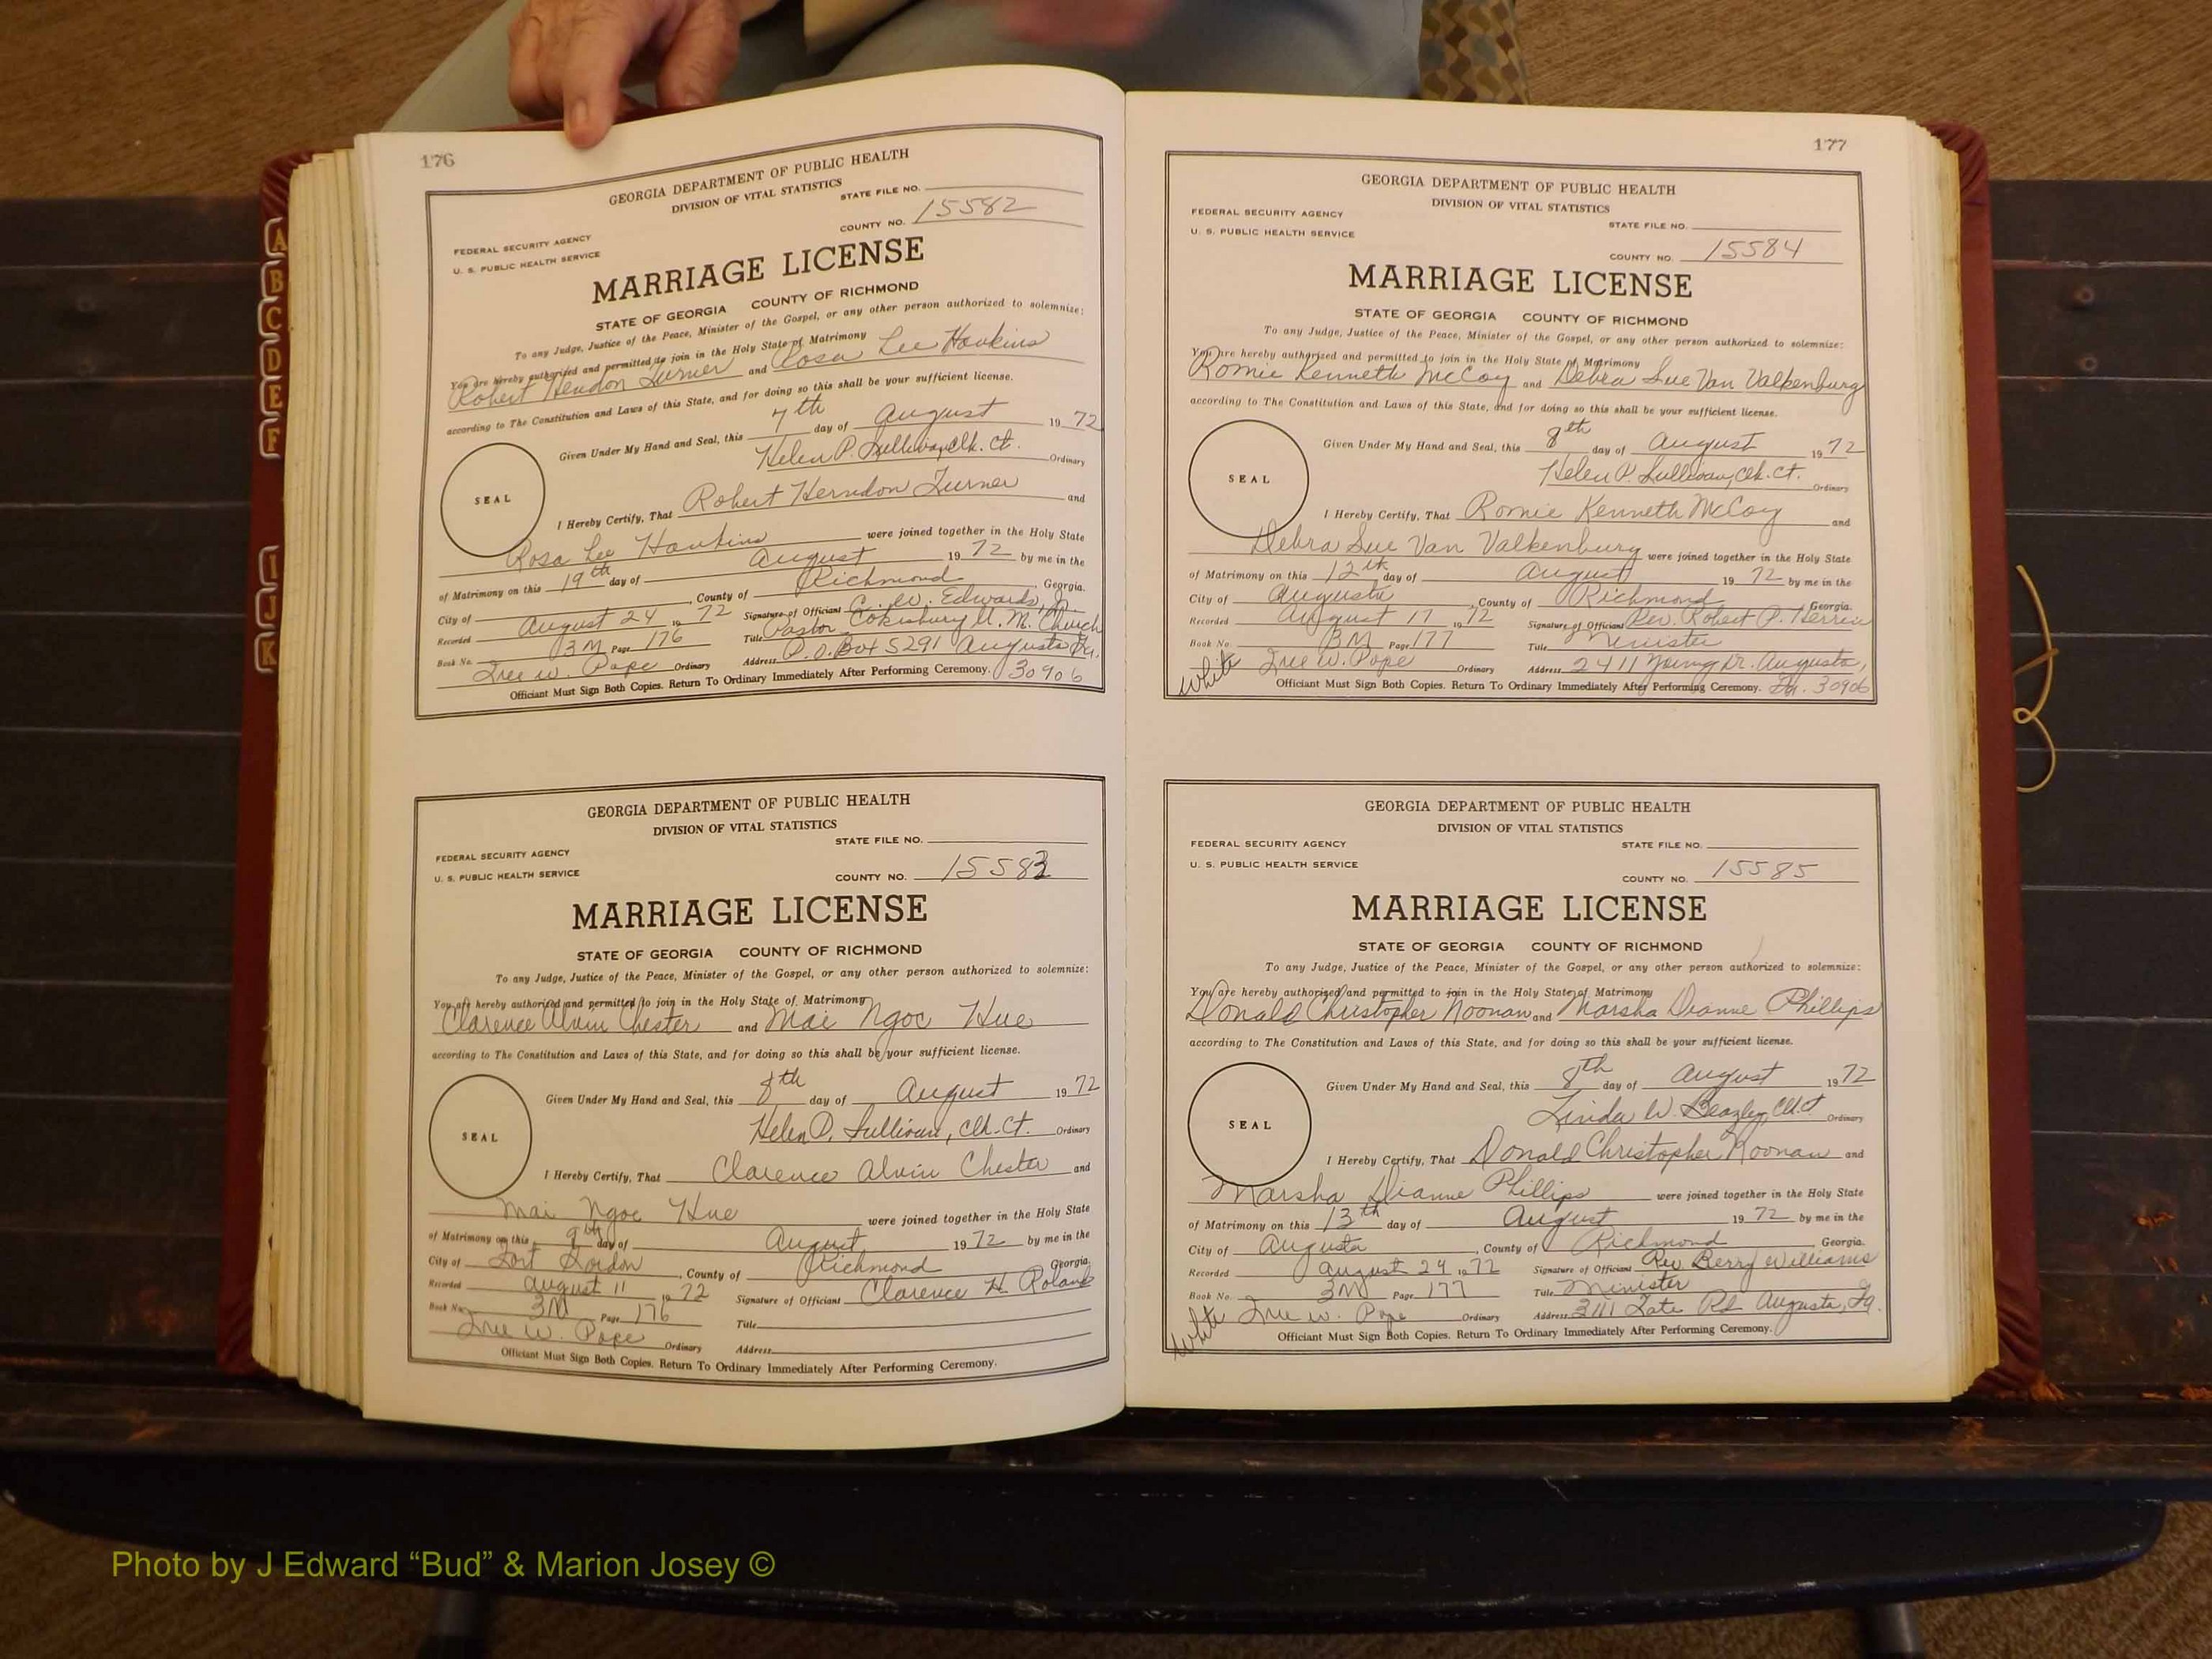 A
B
C
D
E
F
I
J
K
176
GEORGIA DEPARTMENT OF PUBLIC HEALTH
DIVISION OF VITAL STATISTICS
STATE FILE NO.
COUNTY NO. 15582
FEDERAL SECURITY AGENCY
U. S. PUBLIC HEALTH SERVICE
MARRIAGE LICENSE
STATE OF GEORGIA COUNTY OF RICHMOND
To any Judge, Justice of the Peace, Minister of the Gospel, or any other person authorized to solemnize:
You are hereby authorized and permitted to join in the Holy State of Matrimony
Robert Hendon Turner and Rosa Lee Hawkins
according to The Constitution and Laws of this State, and for doing so this shall be your sufficient license.
Given Under My Hand and Seal, this 7th day of August 1972
Helen P. Sullivan, Clk. Ct. Ordinary
SEAL
I Hereby Certify, That Robert Herndon Turner and
Rosa Lee Hawkins were joined together in the Holy State
of Matrimony on this 19th day of August 1972 by me in the
City of , County of Richmond , Georgia.
Recorded August 24 1972 Signature of Officiant C. W. Edwards, Jr.
Book No. 3M Page 176 Title Pastor Cokesbury U. M. Church
Iree W. Pope Ordinary Address P.O. Box 5291 Augusta Ga.
Officiant Must Sign Both Copies. Return To Ordinary Immediately After Performing Ceremony. 30906
GEORGIA DEPARTMENT OF PUBLIC HEALTH
DIVISION OF VITAL STATISTICS
STATE FILE NO.
FEDERAL SECURITY AGENCY
U. S. PUBLIC HEALTH SERVICE
COUNTY NO. 15583
MARRIAGE LICENSE
STATE OF GEORGIA COUNTY OF RICHMOND
To any Judge, Justice of the Peace, Minister of the Gospel, or any other person authorized to solemnize:
You are hereby authorized and permitted to join in the Holy State of Matrimony
Clarence Alvin Chester and Mai Ngoc Hue
according to The Constitution and Laws of this State, and for doing so this shall be your sufficient license.
Given Under My Hand and Seal, this 8th day of August 1972
Helen P. Sullivan, Clk. Ct. Ordinary
SEAL
I Hereby Certify, That Clarence Alvin Chester and
Mai Ngoc Hue were joined together in the Holy State
of Matrimony on this 9th day of August 1972 by me in the
City of Fort Gordon , County of Richmond Georgia.
Recorded August 11 1972 Signature of Officiant Clarence H. Roland
Book No. 3M Page 176 Title
Iree W. Pope Ordinary Address
Officiant Must Sign Both Copies. Return To Ordinary Immediately After Performing Ceremony.
177
GEORGIA DEPARTMENT OF PUBLIC HEALTH
DIVISION OF VITAL STATISTICS
FEDERAL SECURITY AGENCY
U. S. PUBLIC HEALTH SERVICE
STATE FILE NO.
COUNTY NO. 15584
MARRIAGE LICENSE
STATE OF GEORGIA COUNTY OF RICHMOND
To any Judge, Justice of the Peace, Minister of the Gospel, or any other person authorized to solemnize:
You are hereby authorized and permitted to join in the Holy State of Matrimony
Romie Kenneth McCoy and Debra Sue Van Valkenburg
according to The Constitution and Laws of this State, and for doing so this shall be your sufficient license.
Given Under My Hand and Seal, this 8th day of August 1972
Helen P. Sullivan, Clk. Ct. Ordinary
SEAL
I Hereby Certify, That Romie Kenneth McCoy and
Debra Sue Van Valkenburg were joined together in the Holy State
of Matrimony on this 12th day of August 1972 by me in the
City of Augusta , County of Richmond Georgia.
Recorded August 17 1972 Signature of Officiant Rev. Robert P. Herrin
Book No. 3M Page 177 Title Minister
White Iree W. Pope Ordinary Address 2411 Young Dr. Augusta,
Officiant Must Sign Both Copies. Return To Ordinary Immediately After Performing Ceremony. Ga. 30906
GEORGIA DEPARTMENT OF PUBLIC HEALTH
DIVISION OF VITAL STATISTICS
FEDERAL SECURITY AGENCY
U. S. PUBLIC HEALTH SERVICE
STATE FILE NO.
COUNTY NO. 15585
MARRIAGE LICENSE
STATE OF GEORGIA COUNTY OF RICHMOND
To any Judge, Justice of the Peace, Minister of the Gospel, or any other person authorized to solemnize:
You are hereby authorized and permitted to join in the Holy State of Matrimony
Donald Christopher Noonan and Marsha Dianne Phillips
according to The Constitution and Laws of this State, and for doing so this shall be your sufficient license.
Given Under My Hand and Seal, this 8th day of August 1972
Linda W. Beazley, Clk. Ct Ordinary
SEAL
I Hereby Certify, That Donald Christopher Noonan and
Marsha Dianne Phillips were joined together in the Holy State
of Matrimony on this 13th day of August 1972 by me in the
City of Augusta , County of Richmond , Georgia.
Recorded August 29 1972 Signature of Officiant Rev. Berry Williams
Book No. 3M Page 177 Title Minister
White Iree W. Pope Ordinary Address 3111 Tate Rd Augusta, Ga.
Officiant Must Sign Both Copies. Return To Ordinary Immediately After Performing Ceremony.
Photo by J Edward “Bud” & Marion Josey ©